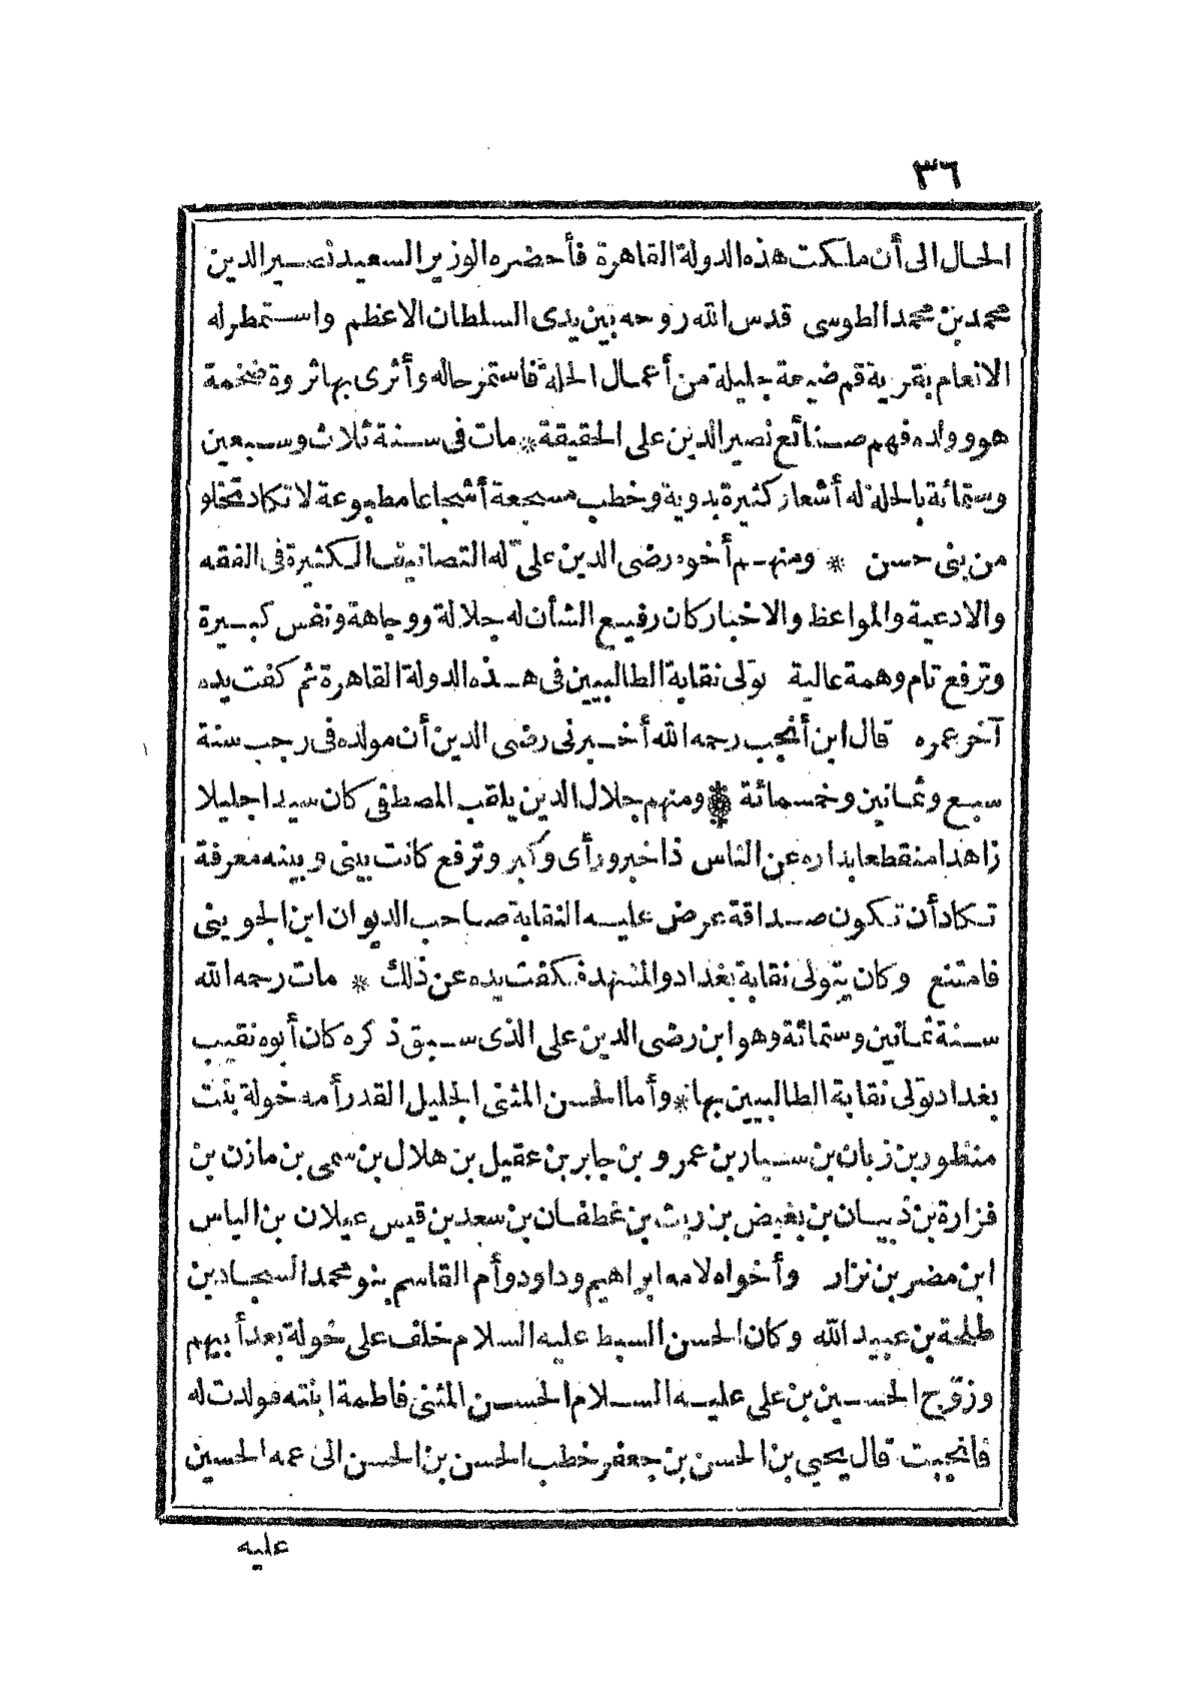 ٣٦
الحال الى أن ملكت هذه الدولة القاهرة فأحضره الوزير السعيد نصير الدين
محمد بن محمد الطوسى قدس الله روحه بين يدى السلطان الاعظم واستمطر له
الانعام بقرية قم ضيعة جليلة من أعمال الحلة فاستمر حاله وأثرى بها ثروة ضخمة
هو وولده فهم صنائع نصير الدين على الحقيقة * مات فى سنة ثلاث وسبعين
وستمائة بالحلة له أشعار كثيرة بدوية وخطب مسجعة أشجاعا مطبوعة لا تكاد تخلو
من بنى حسن * ومنهم أخوه رضى الدين على له التصانيف الكثيرة فى الفقه
والادعية والمواعظ والاخبار كان رفيع الشأن له جلالة ووجاهة ونفس كبيرة
وترفع تام وهمة عالية تولى نقابة الطالبيين فى هذه الدولة القاهرة ثم كفت يده
آخر عمره قال ابن أنجب رحمه الله أخبرنى رضى الدين أن مولده فى رجب سنة
سبع وثمانين وخمسمائة * ومنهم جلال الدين يلقب المصطفى كان سيدا جليلا
زاهدا منقطعا بداره عن الناس ذا خبر ورأى وكبر وترفع كانت بينى وبينه معرفة
تكاد أن تكون صداقة عرض عليه النقابة صاحب الديوان ابن الجوينى
فامتنع وكان يتولى نقابة بغداد والمشهد فكفت يده عن ذلك * مات رحمه الله
سنة ثمانين وستمائة وهو ابن رضى الدين على الذى سبق ذكره كان أبوه نقيب
بغداد تولى نقابة الطالبيين بها * وأما الحسن المثنى الجليل القدر أمه خولة بنت
منظور بن زبان بن سيار بن عمرو بن جابر بن عقيل بن هلال بن سمى بن مازن بن
فزارة بن ذبيان بن بغيض بن ريث بن غطفان بن سعد بن قيس عيلان بن الياس
ابن مضر بن نزار وأخواه لامه ابراهيم وداود وأم القاسم بنو محمد السجاد بن
طلحة بن عبيد الله وكان الحسن السبط عليه السلام خلف على خولة بعد أبيهم
وزوّج الحسين بن على عليه السلام الحسن المثنى فاطمة ابنته فولدت له
فانجبت قال يحيى بن الحسن بن جعفر خطب الحسن بن الحسن الى عمه الحسين
عليه